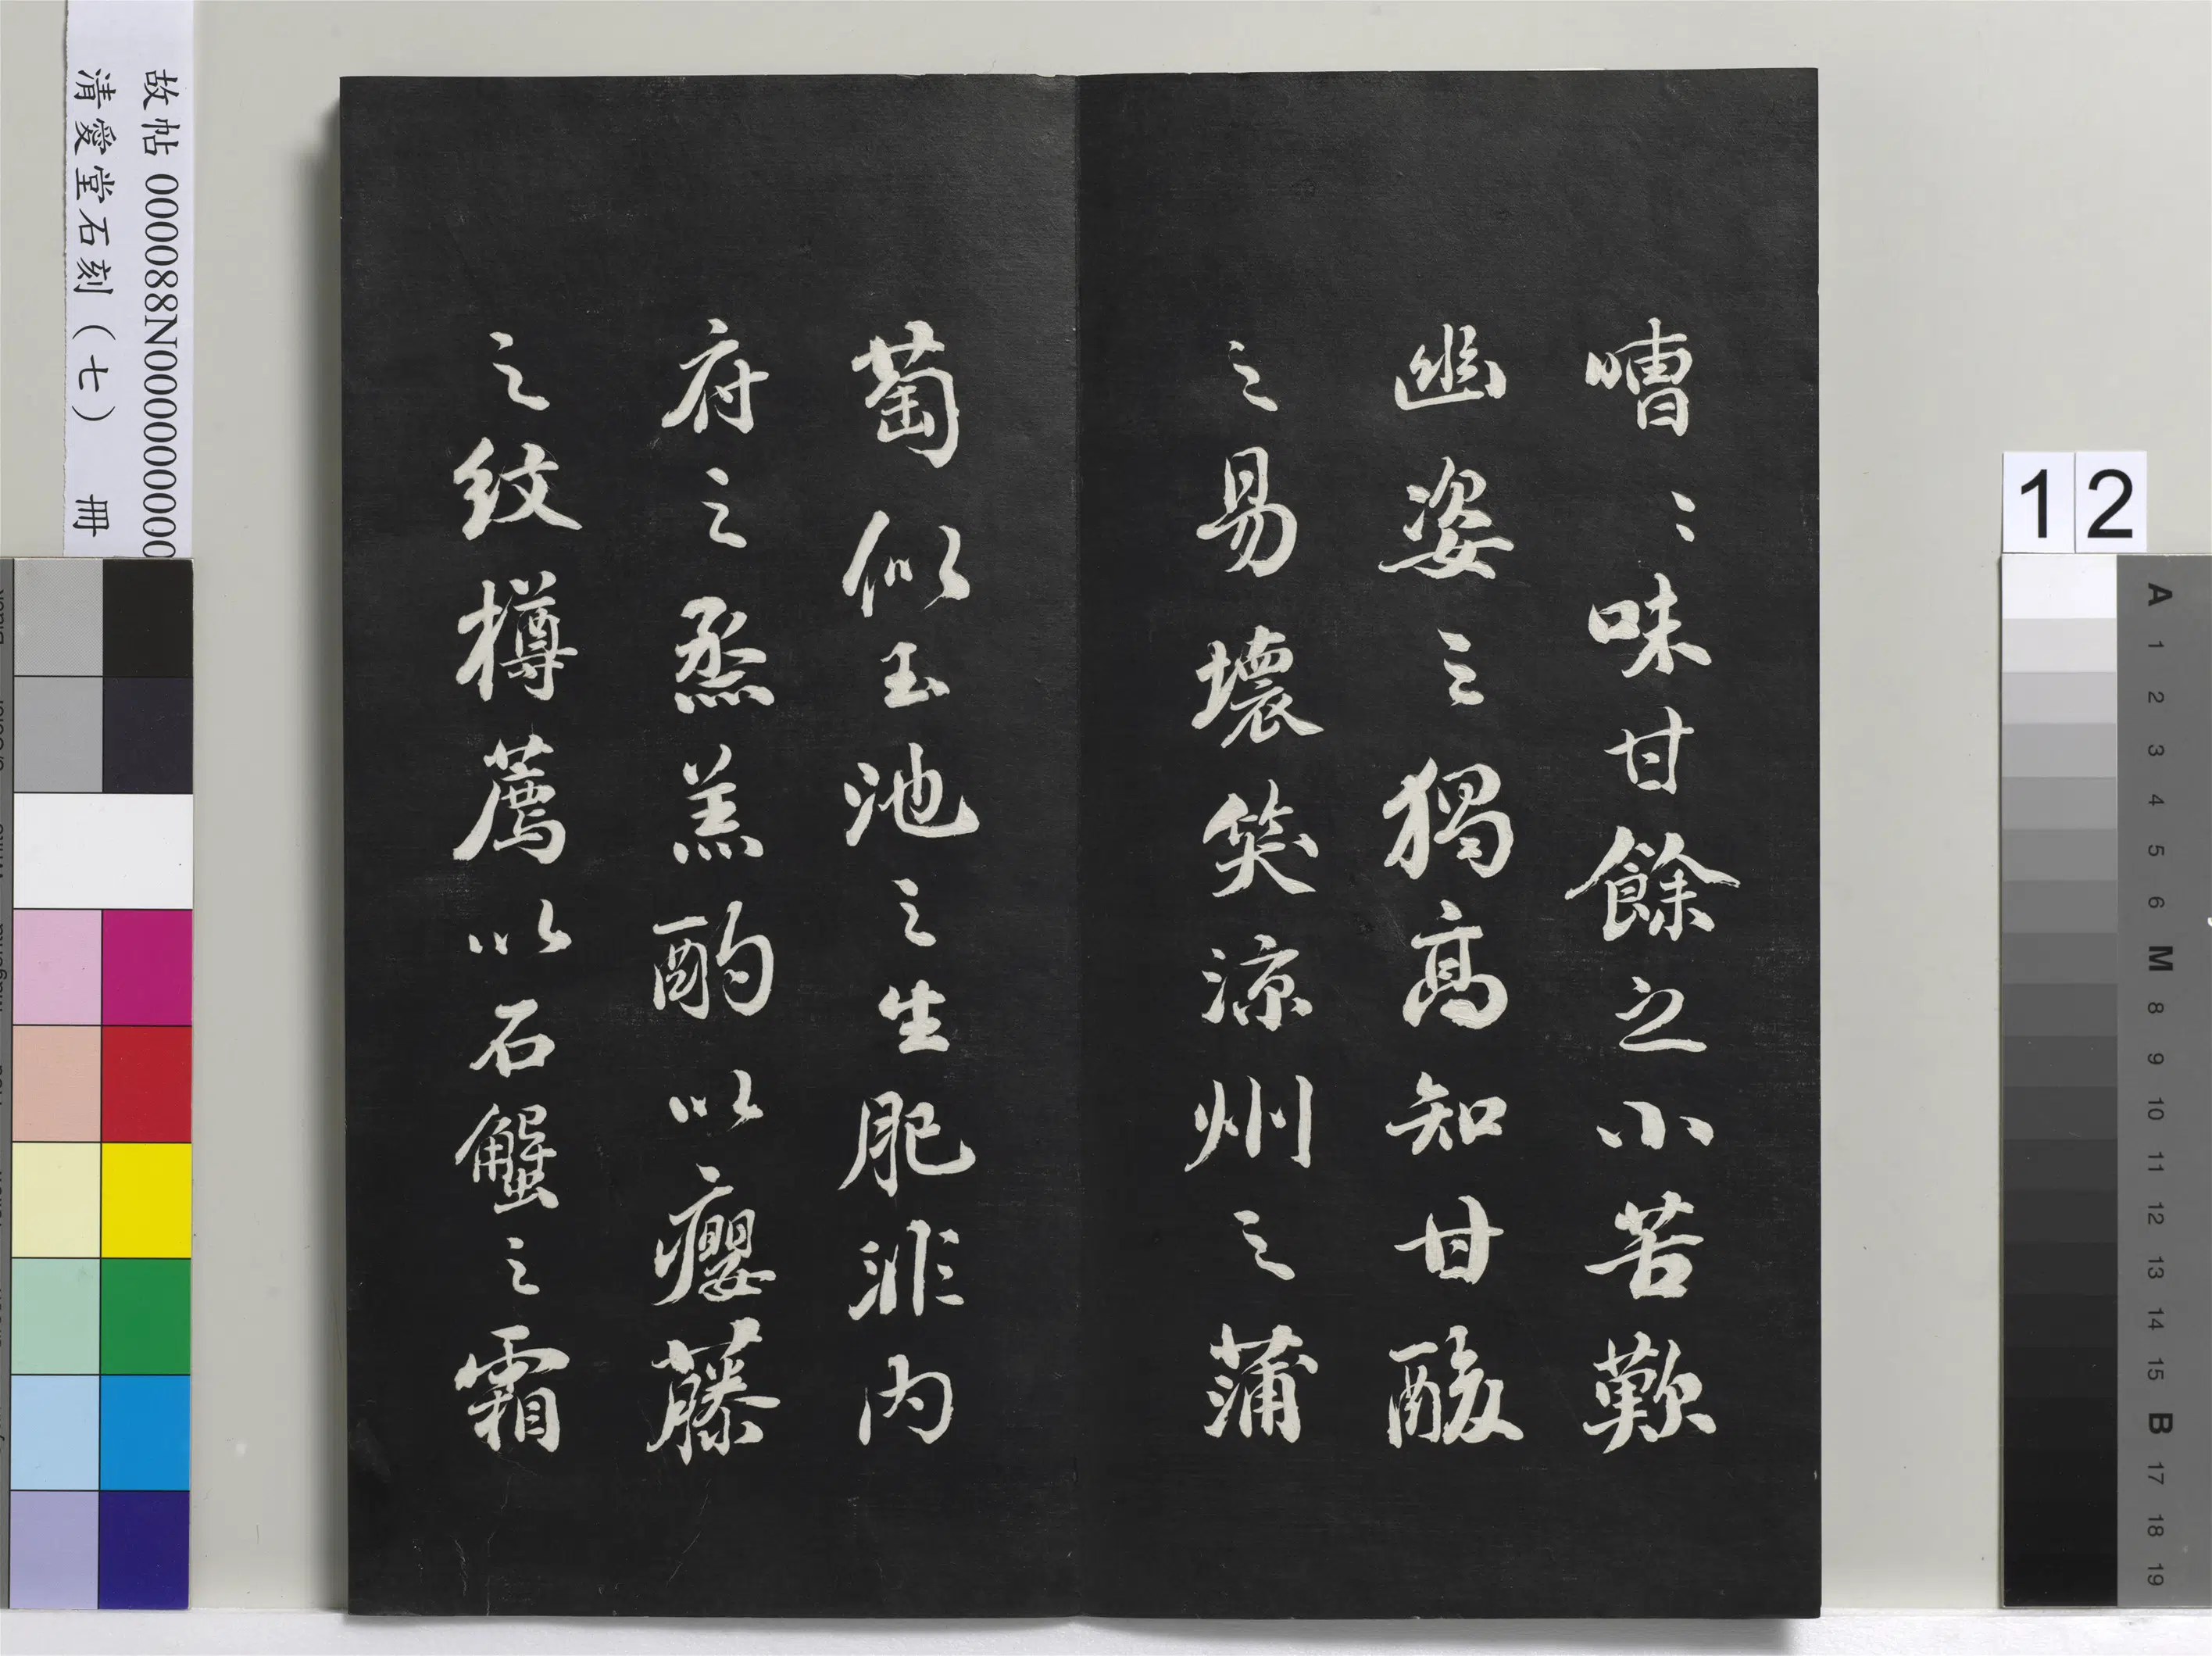 嘈〻味甘餘之小苦歎
幽姿之獨高知甘酸
之易壞笑涼州之蒲
萄似玉池之生肥非内
府之烝羔酌以癭藤
之紋樽薦以石蟹之霜
故帖 000088N000000000
清愛堂石刻（七） 冊
12
A
1
2
3
4
5
6
M
8
9
10
11
12
13
14
15
B
17
18
19